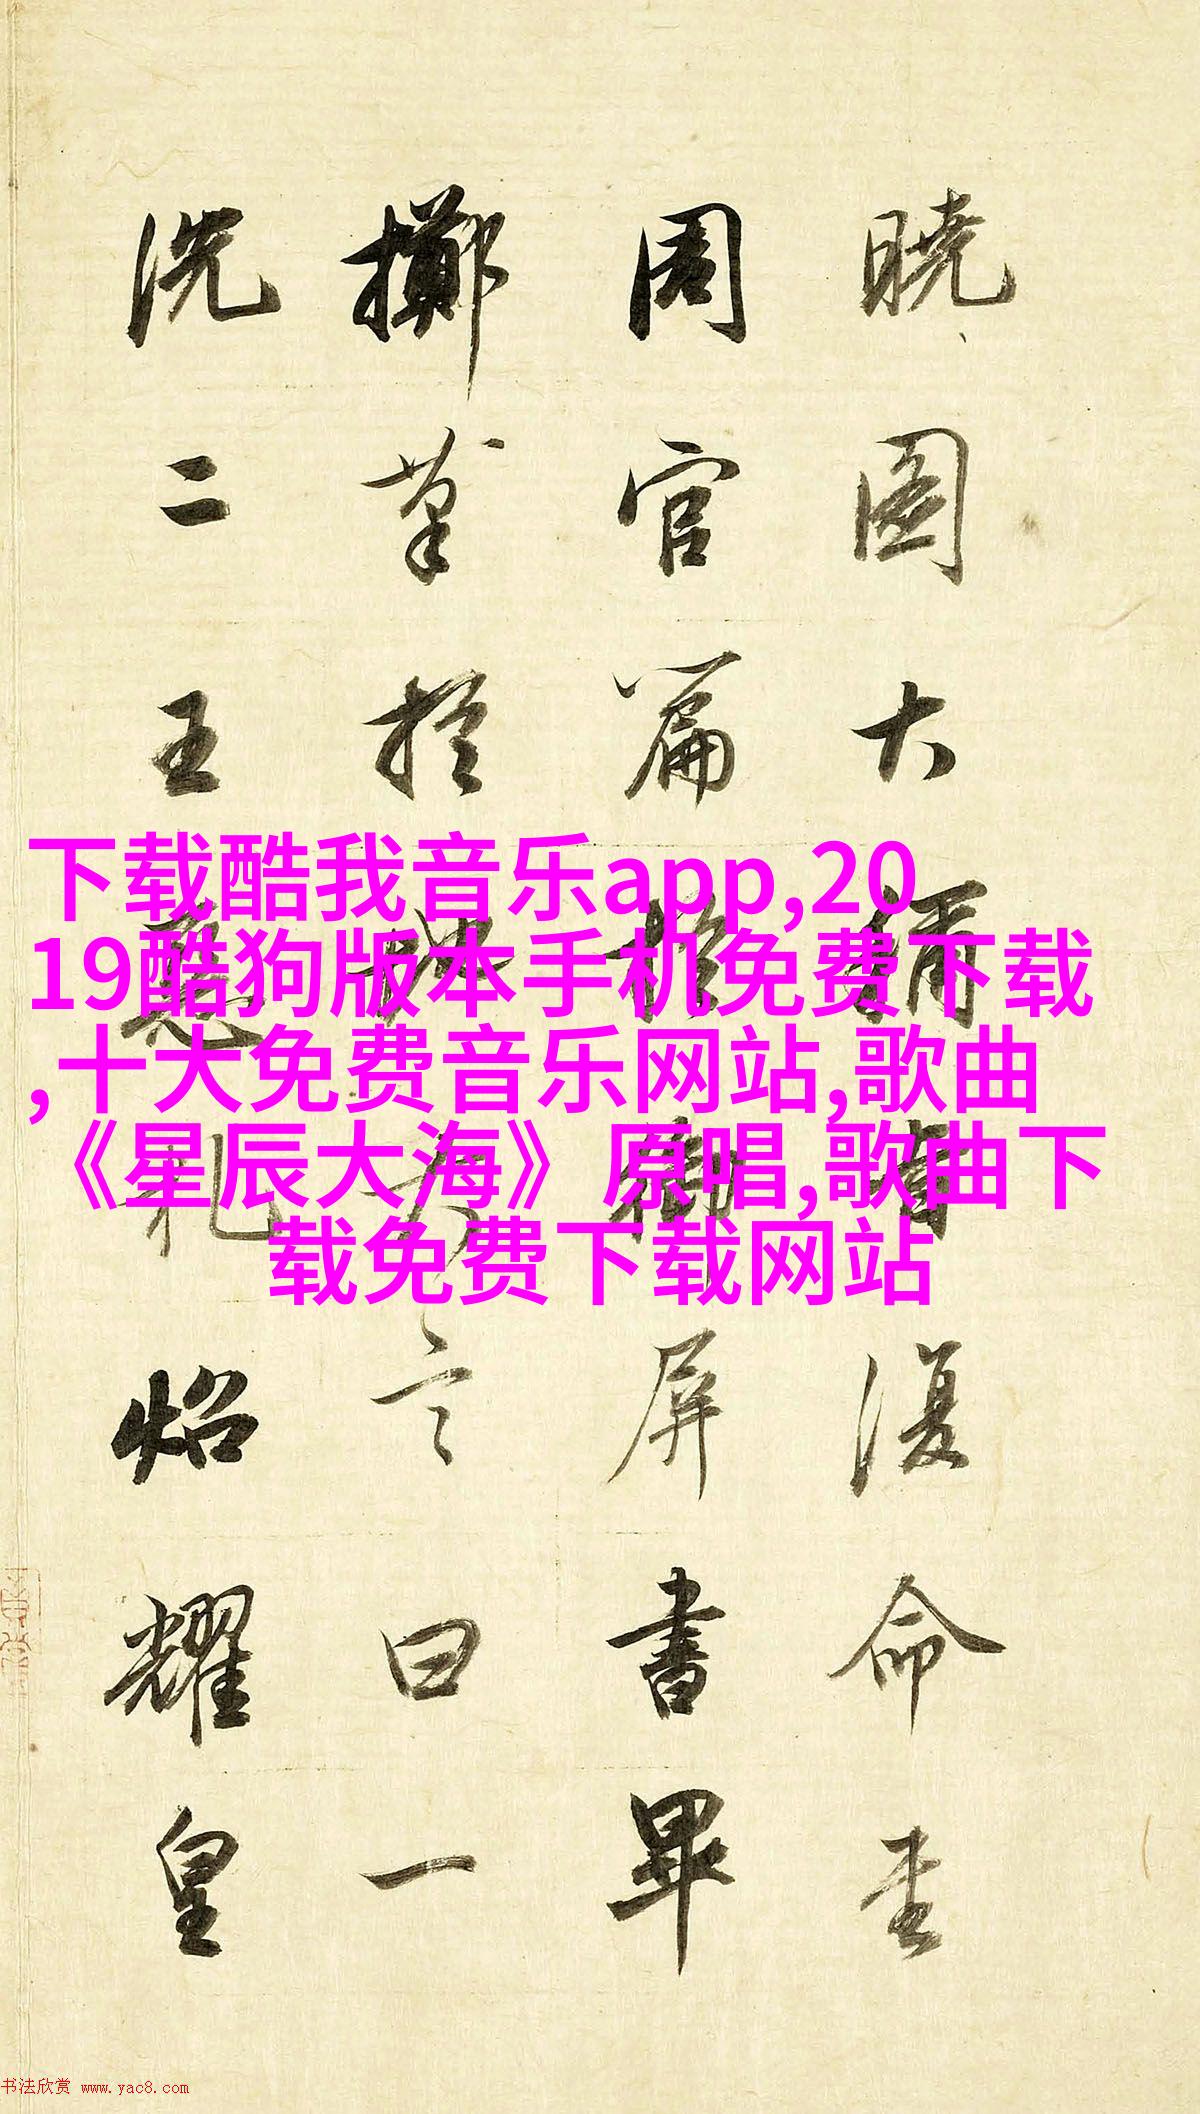 曉圖大稱旨復命
周官篇於御屏書畢
擲筆於地大言曰一
洗二王惡札炤耀皇
下载酷我音乐app,20
19酷狗版本手机免费下载
,十大免费音乐网站,歌曲
《星辰大海》原唱,歌曲下
载免费下载网站
书法欣赏 www.yac8.com